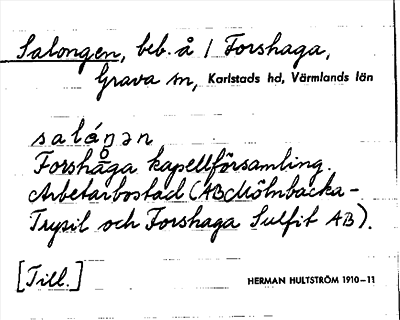 Salongen, beb. å / Forshaga,
Grava sn, Karlstads hd, Värmlands län
salåŋən
Forshaga kapellförsamling.
Arbetarbostad (AB Mölnbacka-
Trysil och Forshaga Sulfit AB).
[Till.]
HERMAN HULTSTRÖM 1910-11